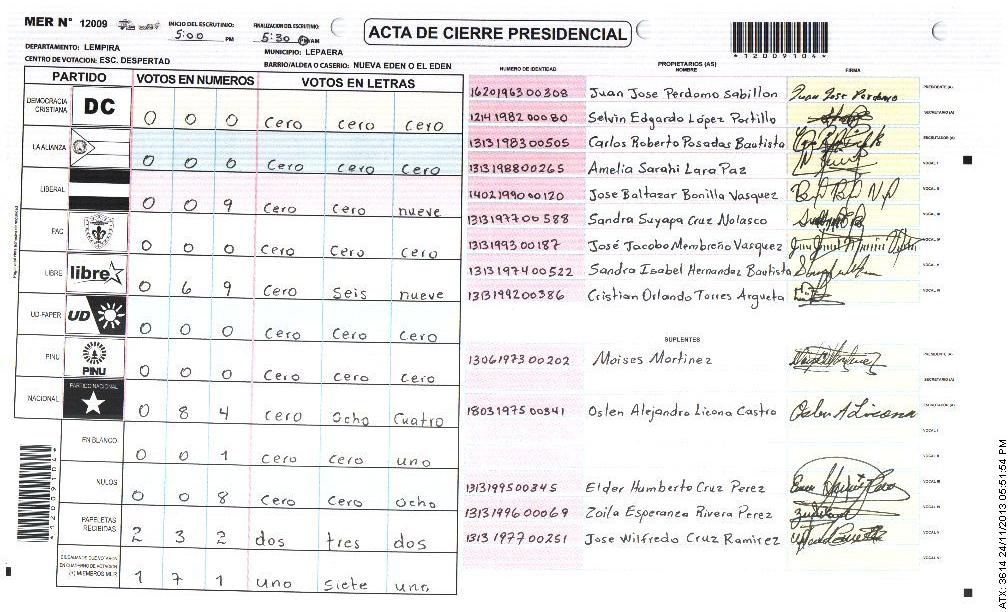 MER N° 12009
INICIO DEL ESCRUTINIO: 5:00 PM
FINALIZACION DEL ESCRUTINIO: 5:30 PM/AM
ACTA DE CIERRE PRESIDENCIAL
*12009104*
DEPARTAMENTO: LEMPIRA
MUNICIPIO: LEPAERA
CENTRO DE VOTACION: ESC. DESPERTAD
BARRIO/ALDEA O CASERIO: NUEVA EDEN O EL EDEN
PARTIDO VOTOS EN NUMEROS VOTOS EN LETRAS
DEMOCRACIA CRISTIANA DC 0 0 0 cero cero cero
LA ALIANZA 0 0 0 cero cero cero
LIBERAL 0 0 9 cero cero nueve
PAC 0 0 0 cero cero cero
LIBRE libre 0 6 9 cero seis nueve
UD-FAPER UD 0 0 0 cero cero cero
PINU PINU 0 0 0 cero cero cero
NACIONAL PARTIDO NACIONAL 0 8 4 cero ocho cuatro
EN BLANCO 0 0 1 cero cero uno
NULOS 0 0 8 cero cero ocho
PAPELETAS RECIBIDAS 2 3 2 dos tres dos
CIUDADANOS QUE VOTARON EN CUADERNO DE VOTACION (+) MIEMBROS MER 1 7 1 uno siete uno
*12009104*
NUMERO DE IDENTIDAD PROPIETARIOS (AS) NOMBRE FIRMA
1620196300308 Juan Jose Perdomo Sabillon Juan Jose Perdomo PRESIDENTE (A)
1214198200080 Selvin Edgardo López Portillo SECRETARIO (A)
1313198300505 Carlos Roberto Posadas Bautista ESCRUTADOR (A)
1313198800265 Amelia Sarahi Lara Paz VOCAL I
1402199000120 Jose Baltazar Bonilla Vasquez VOCAL II
1313197700588 Sandra Suyapa Cruz Nolasco VOCAL III
1313199300187 José Jacobo Membreño Vasquez VOCAL IV
1313197400522 Sandra Isabel Hernandez Bautista VOCAL V
1313199200386 Cristian Orlando Torres Argueta VOCAL VI
SUPLENTES
1306197300202 Moises Martinez PRESIDENTE (A)
SECRETARIO (A)
1803197500341 Oslen Alejandro Licona Castro Oslen A Licona ESCRUTADOR (A)
VOCAL I
VOCAL II
1313199500345 Elder Humberto Cruz Perez VOCAL III
1313199600069 Zoila Esperanza Rivera Perez VOCAL IV
1313197700251 Jose Wilfredo Cruz Ramirez VOCAL V
VOCAL VI
ATX: 3614 24/11/2013 05:51:54 PM